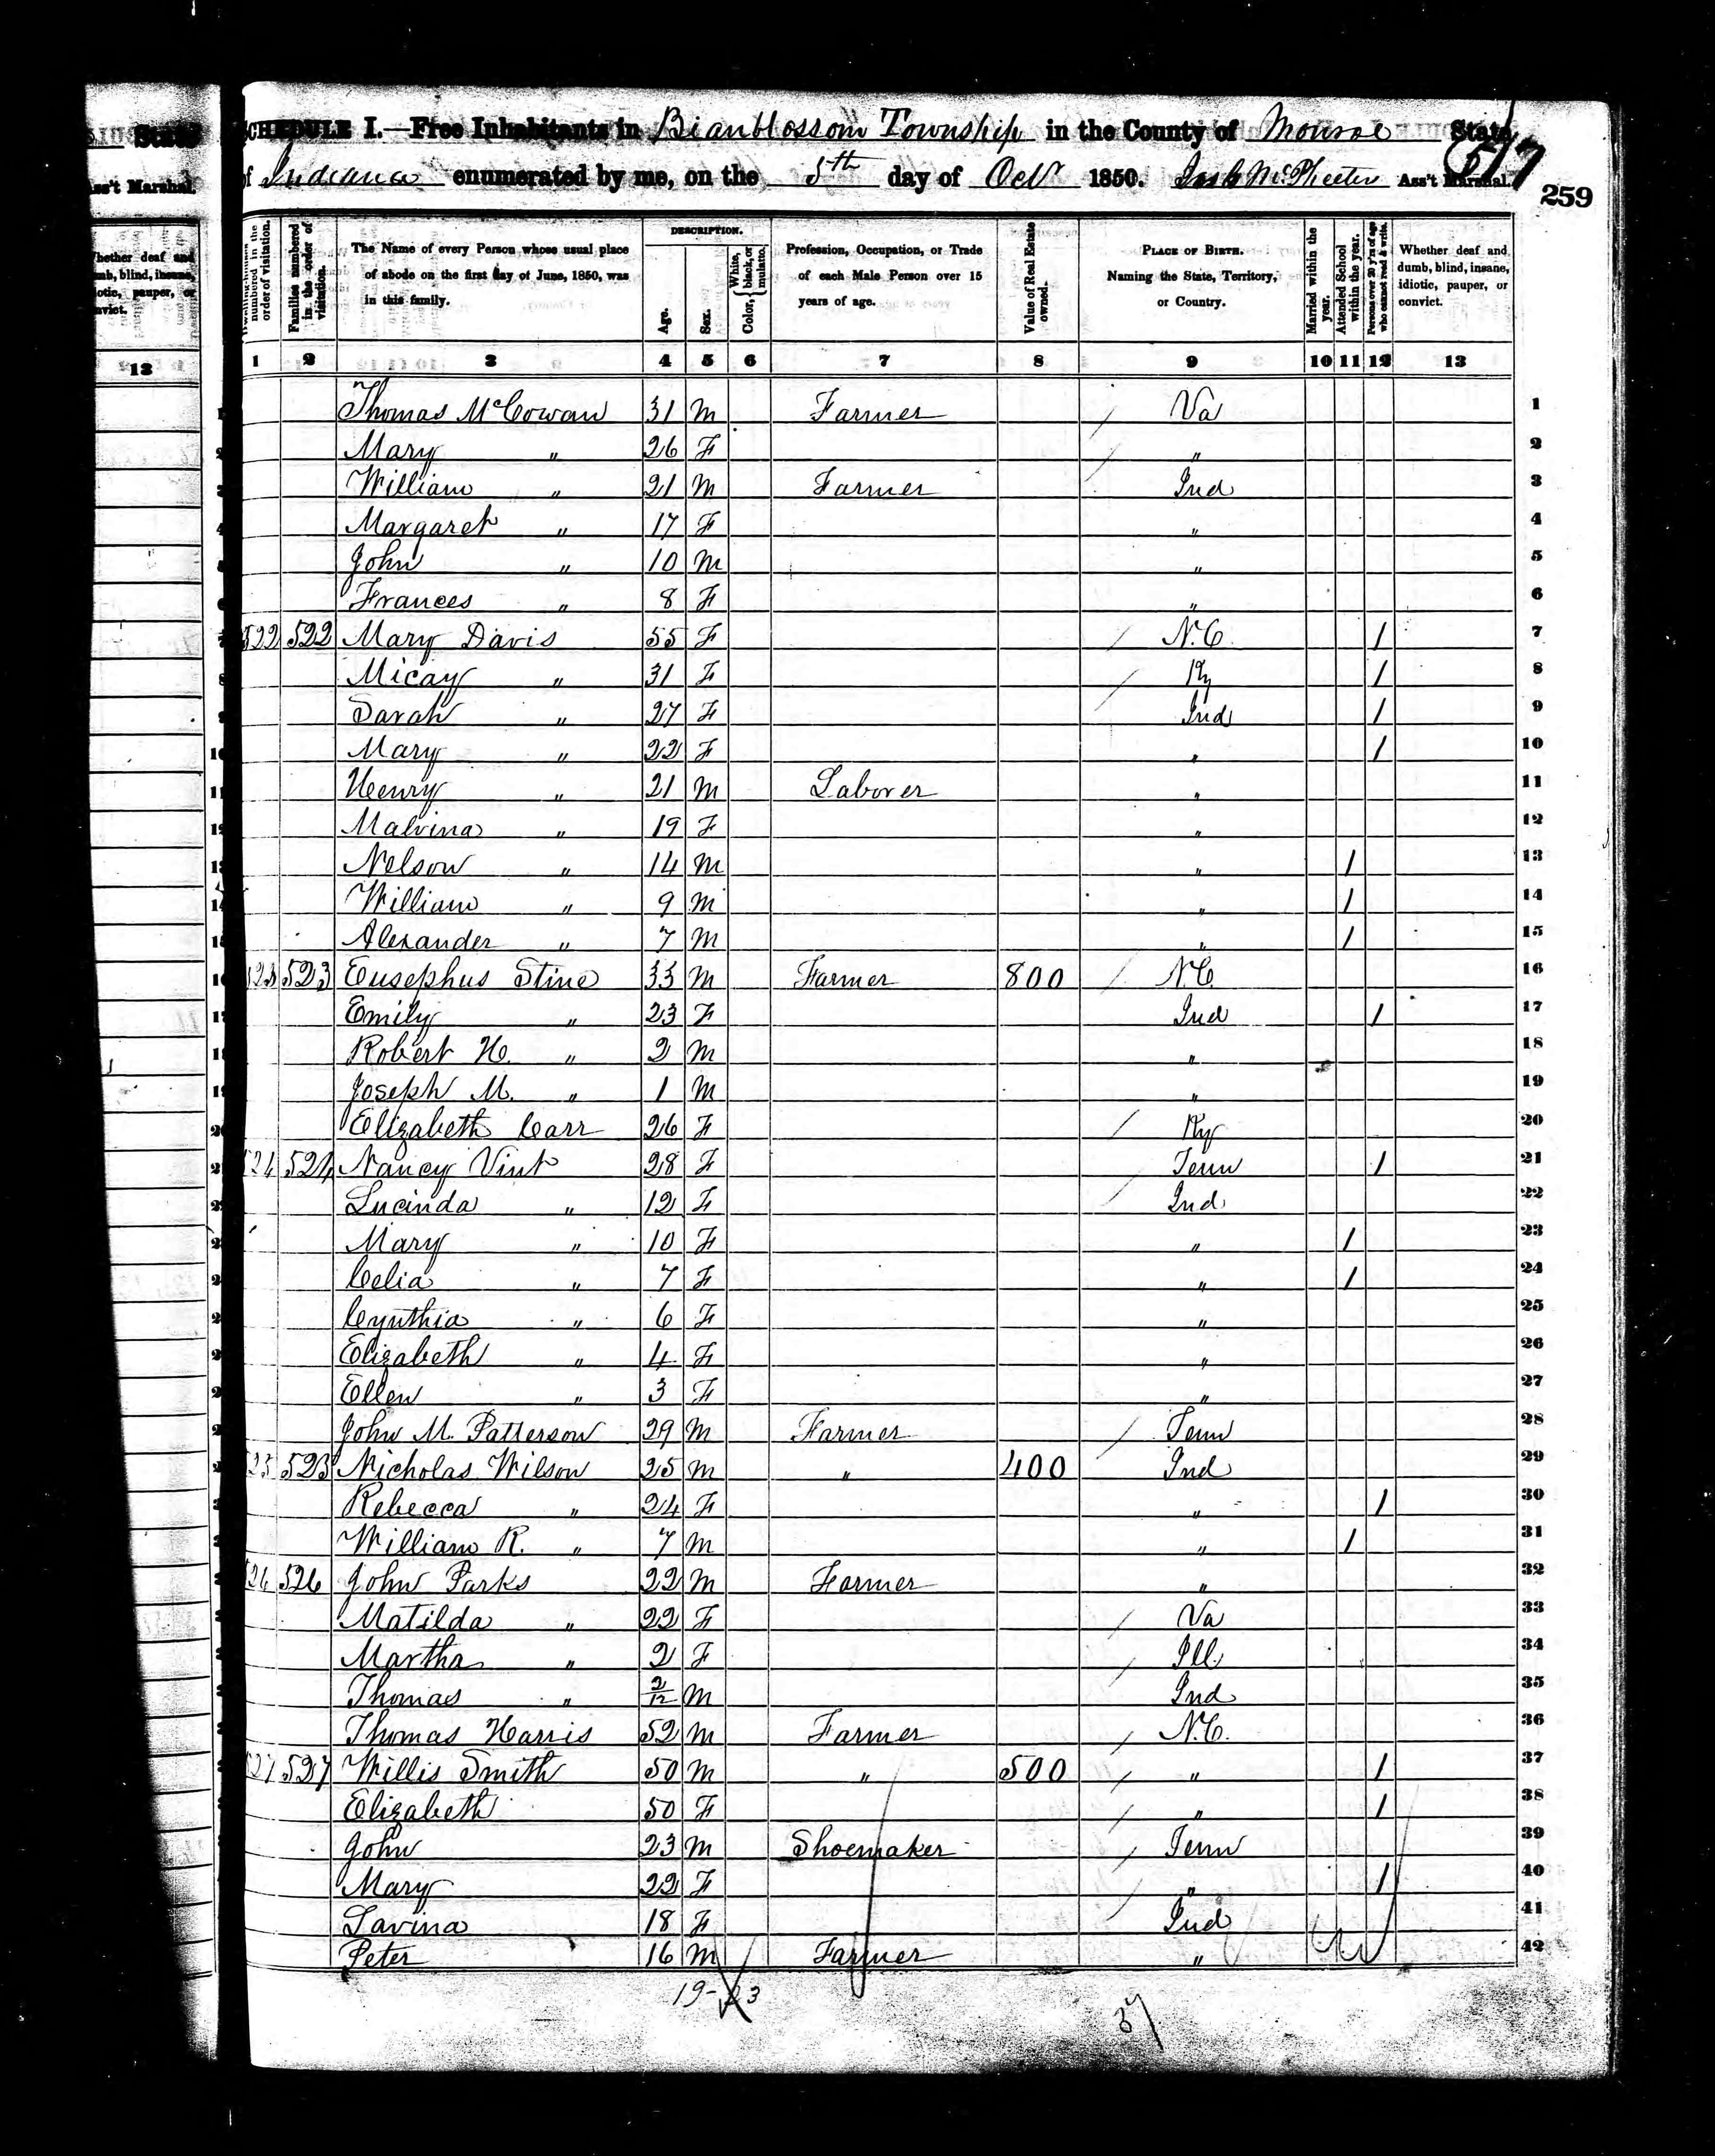 State
Ass't Marshal.
SCHEDULE I.—Free Inhabitants in Bianblossom Township in the County of Monroe State
of Indiana enumerated by me, on the 5th day of Oct 1850. McPheeters Ass't Marshal.
517
259
Whether deaf and dumb, blind, insane, idiotic, pauper, or convict.
13
Dwelling-houses numbered in the order of visitation.
Families numbered in the order of visitation.
The Name of every Person whose usual place of abode on the first day of June, 1850, was in this family.
DESCRIPTION.
Age.
Sex.
Color, { White, black, or mulatto.
Profession, Occupation, or Trade of each Male Person over 15 years of age.
Value of Real Estate owned.
PLACE OF BIRTH. Naming the State, Territory, or Country.
Married within the year.
Attended School within the year.
Persons over 20 y'rs of age who cannot read & write.
Whether deaf and dumb, blind, insane, idiotic, pauper, or convict.
1 2 3 4 5 6 7 8 9 10 11 12 13
1 Thomas McCowan 31 M Farmer Va 1
2 Mary " 26 F " 2
3 William " 21 M Farmer Ind 3
4 Margaret " 17 F " 4
5 John " 10 M " 5
6 Frances " 8 F " 6
7 522 522 Mary Davis 55 F N.C. 1 7
8 Micay " 31 F Ky 1 8
9 Sarah " 27 F Ind 1 9
10 Mary " 22 F " 1 10
11 Henry " 21 M Laborer " 11
12 Malvina " 19 F " 12
13 Nelson " 14 M " 1 13
14 William " 9 M " 1 14
15 Alexander " 7 M " 1 15
16 523 523 Eusephus Stine 33 M Farmer 800 N.C. 16
17 Emily " 23 F Ind 1 17
18 Robert H. " 2 M " 18
19 Joseph M. " 1 M " 19
20 Elizabeth Carr 26 F Ky 20
524 524 Nancy Vint 28 F Tenn 1 21
Lucinda " 12 F Ind 22
Mary " 10 F " 1 23
Celia " 7 F " 1 24
Cynthia " 6 F " 25
Elizabeth " 4 F " 26
Ellen " 3 F " 27
John M. Patterson 29 M Farmer Tenn 28
525 523 Nicholas Wilson 25 M " 400 Ind 29
Rebecca " 24 F " 1 30
William R. " 7 M " 1 31
526 526 John Parks 22 M Farmer " 32
Matilda " 22 F Va 33
Martha " 2 F Ill. 34
Thomas " 2/12 M Ind 35
Thomas Harris 52 M Farmer N.C. 36
527 527 Willis Smith 50 M " 500 " 1 37
Elizabeth 50 F " 1 38
John 23 M Shoemaker Tenn 39
Mary 22 F " 1 40
Lavina 18 F Ind 41
Peter 16 M Farmer " 42
19-23
37